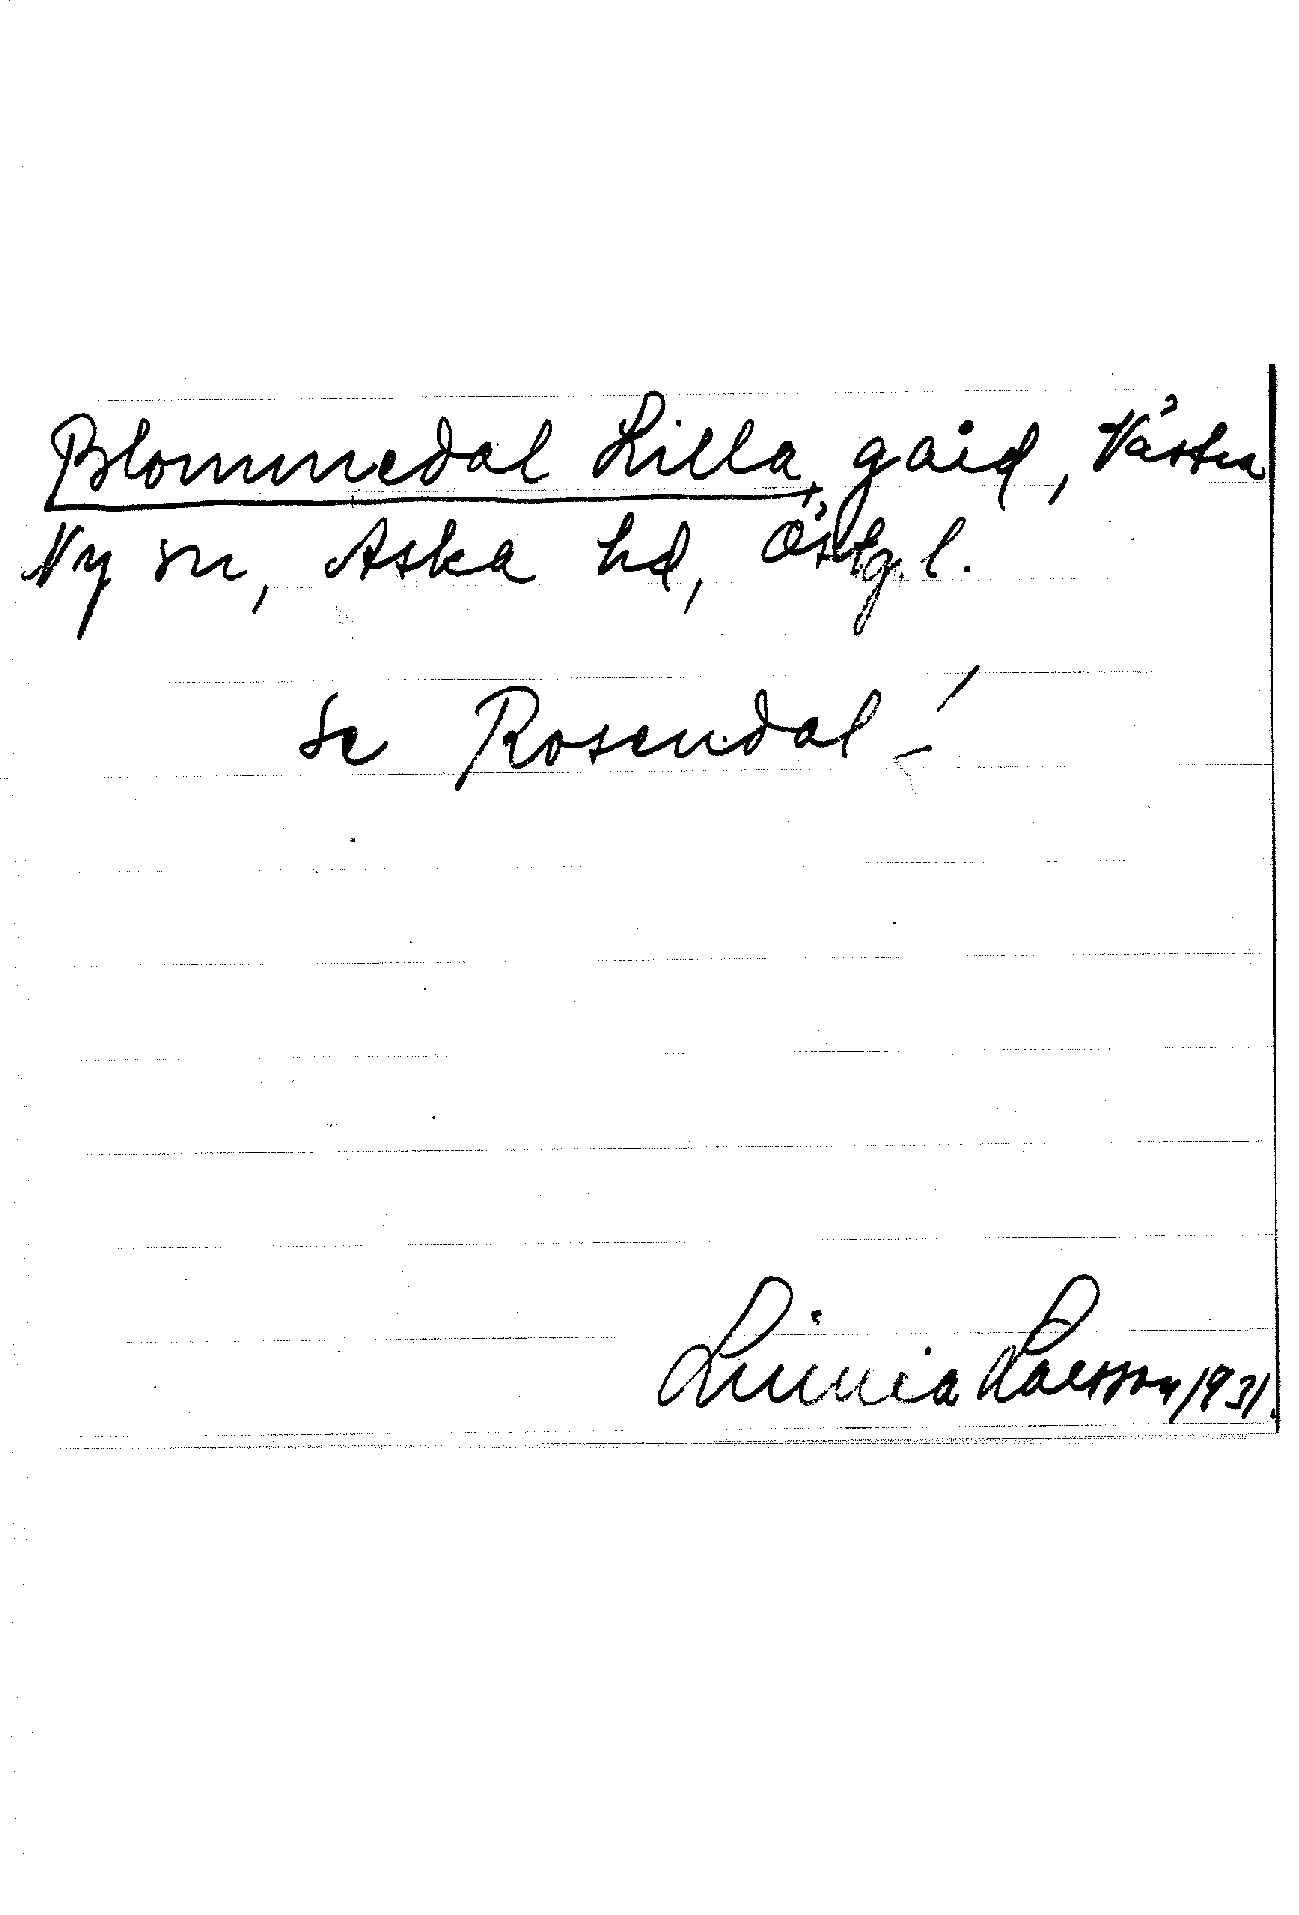 Blommedal Lilla, gård, Västra
Ny sn, Aska hd, Östg. l.
Se Rosendal!
Linnéa Larsson 1931.